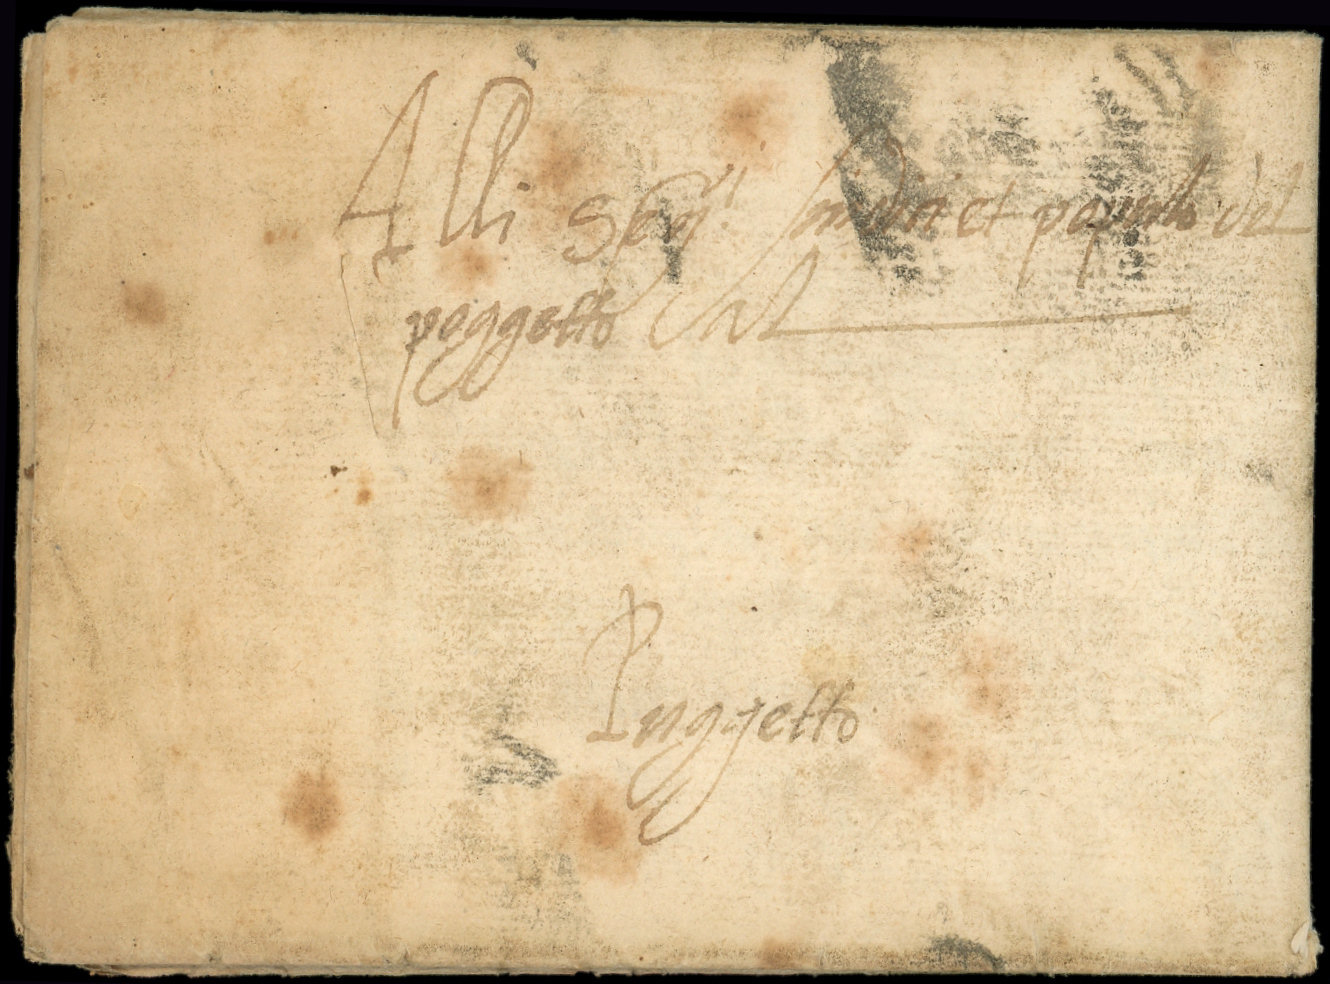 Alli Spⁿ.ⁱ sindici et populo del
poggetto Val
Puggetto